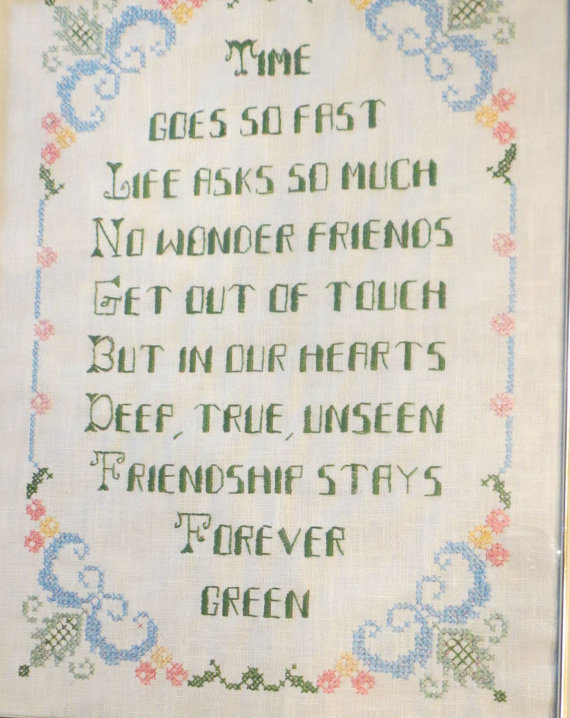 TIME
GOES SO FAST
LIFE ASKS SO MUCH
NO WONDER FRIENDS
GET OUT OF TOUCH
BUT IN OUR HEARTS
DEEP, TRUE, UNSEEN
FRIENDSHIP STAYS
FOREVER
GREEN